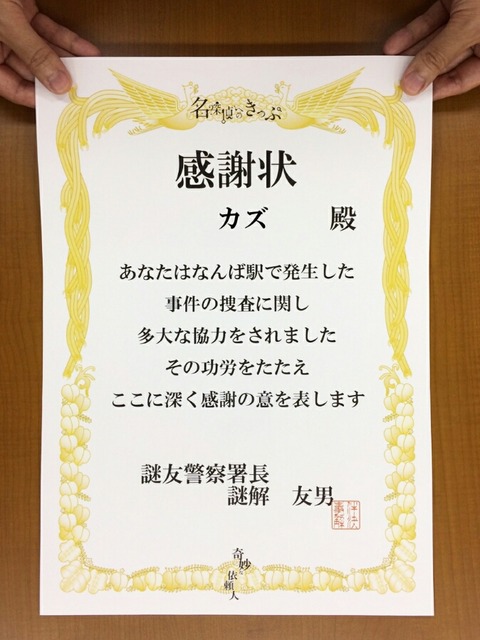 名探偵のきっぷ
感謝状
カズ 殿
あなたはなんば駅で発生した
事件の捜査に関し
多大な協力をされました
その功労をたたえ
ここに深く感謝の意を表します
謎友警察署長
謎解 友男
奇妙な依頼人